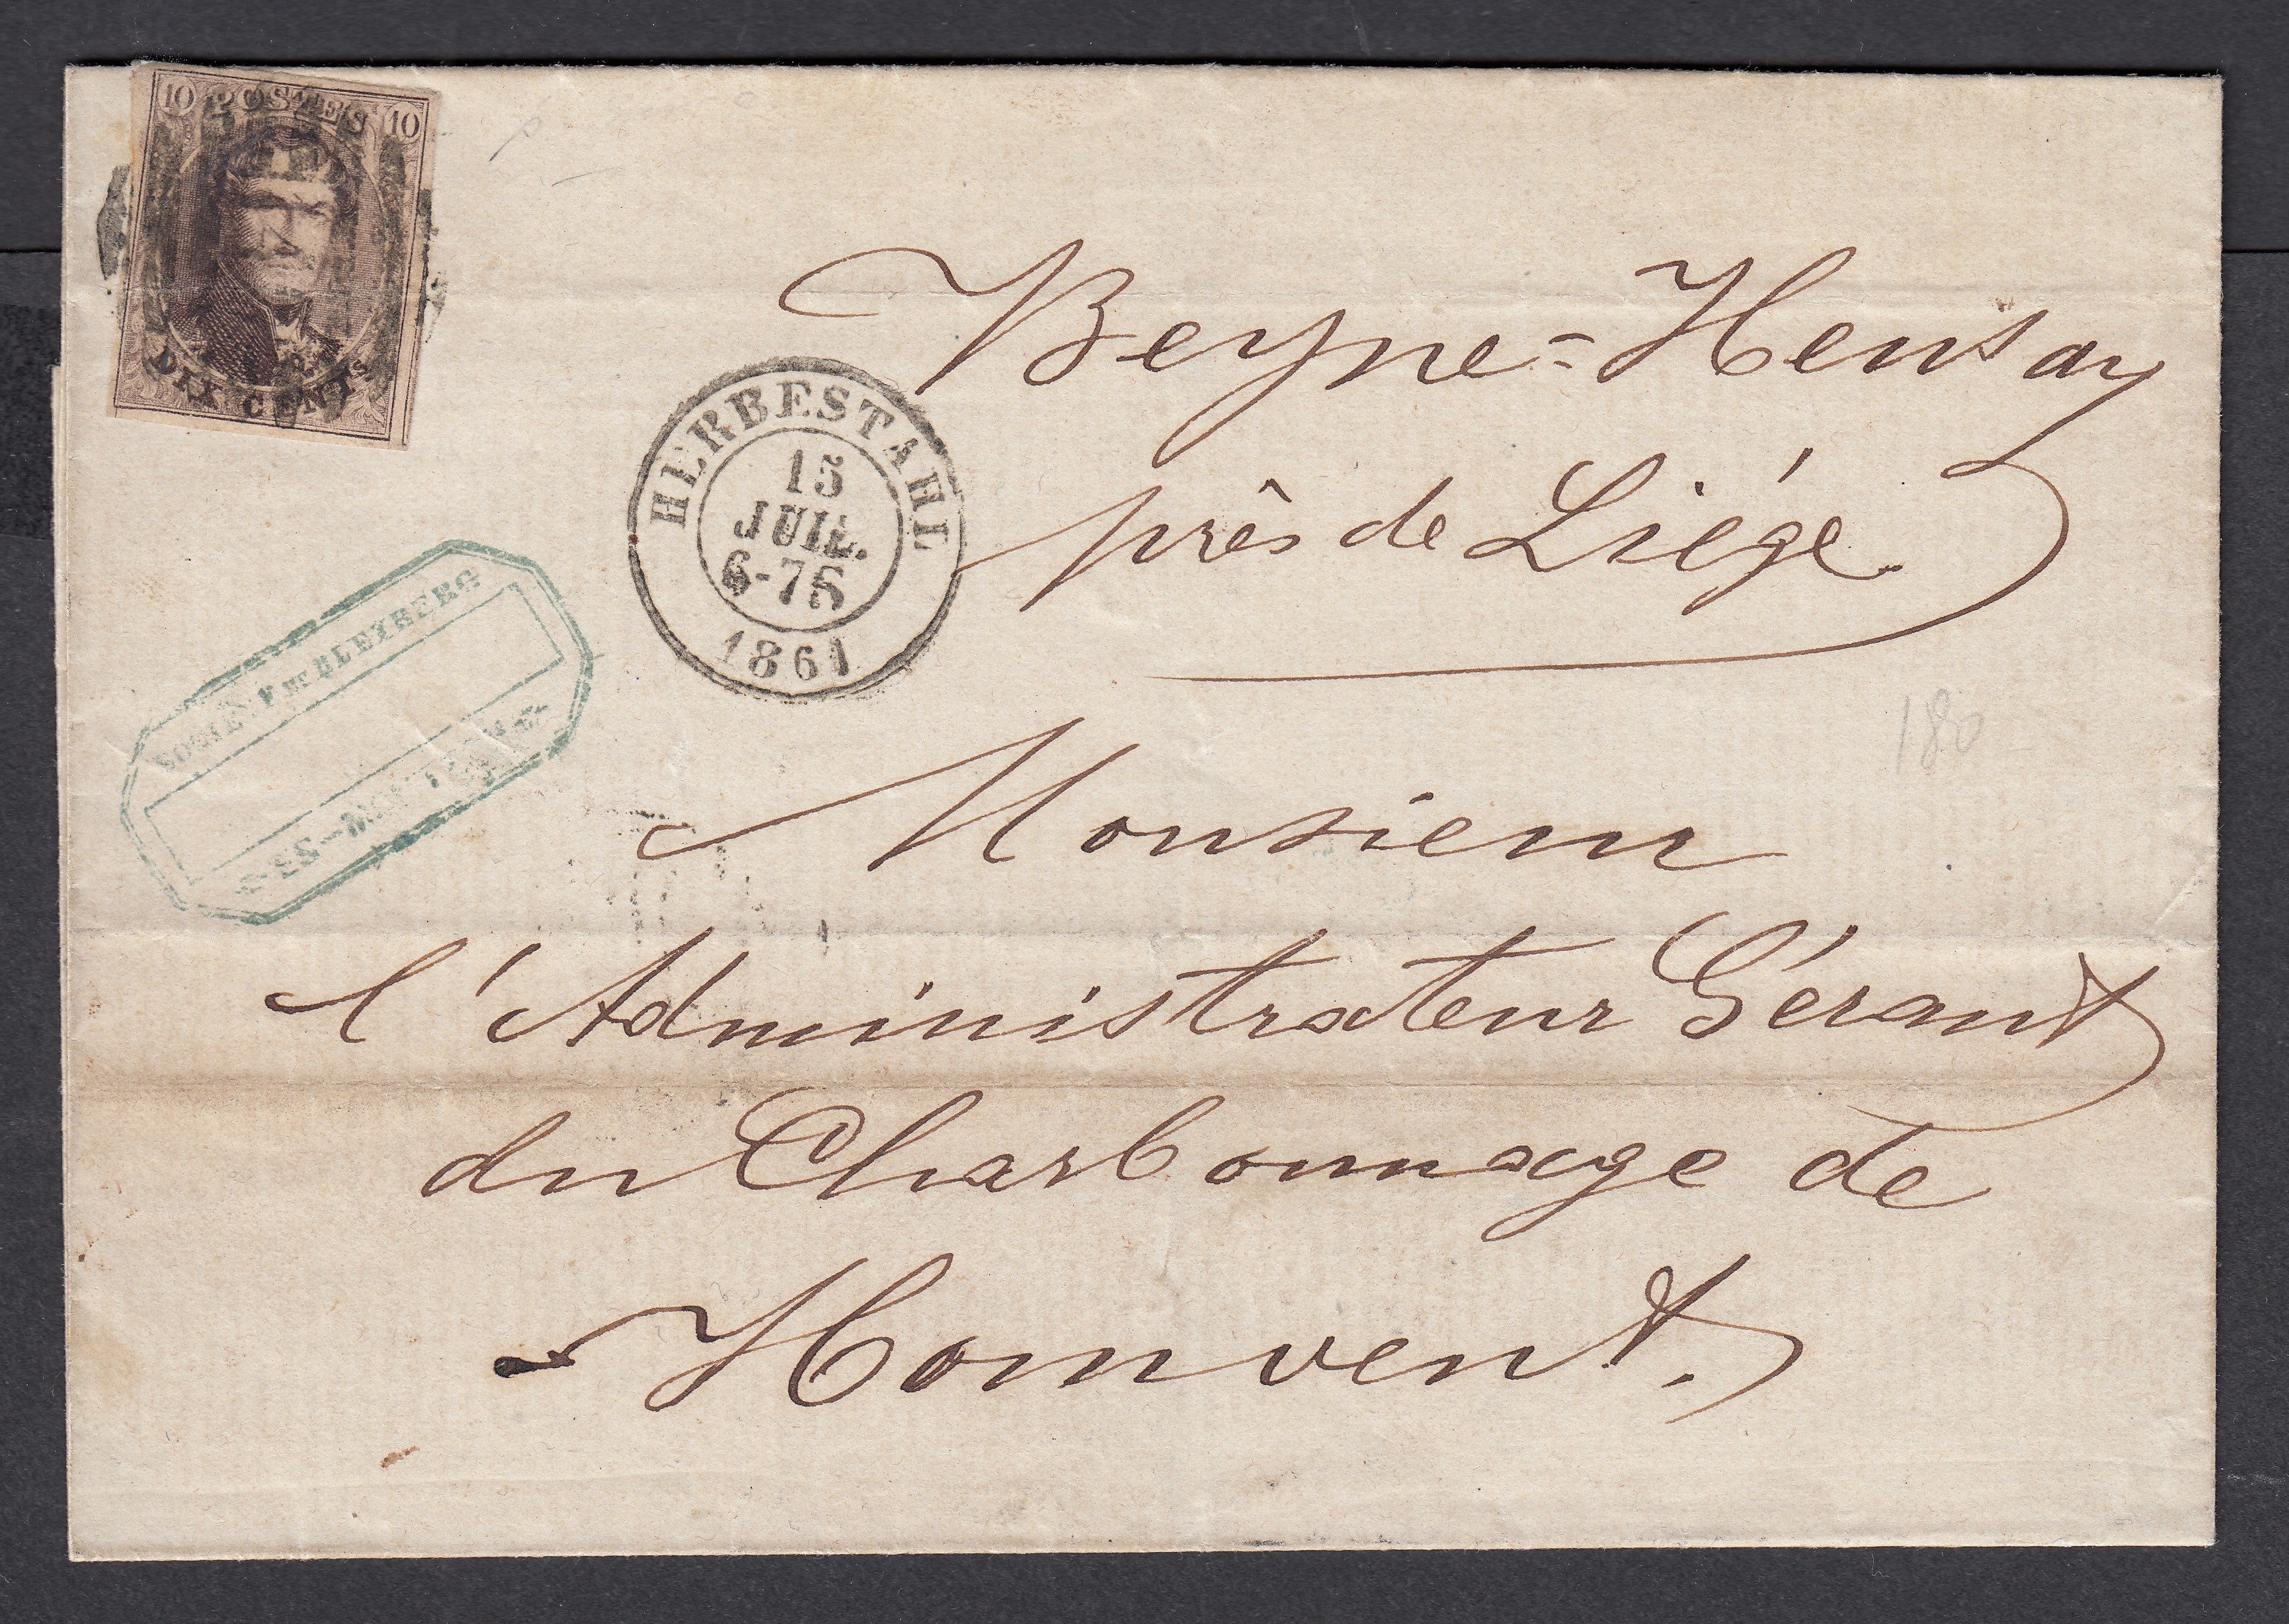 10 POSTES 10
DIX CENTS
HERBESTAHL
15
JUIL.
6-7S
1861
BLEYBERG
Beyne=Heusay
près de Liége.
180
Monsieur
l'Administrateur Gérant
du Charbonnage de
Homvent.